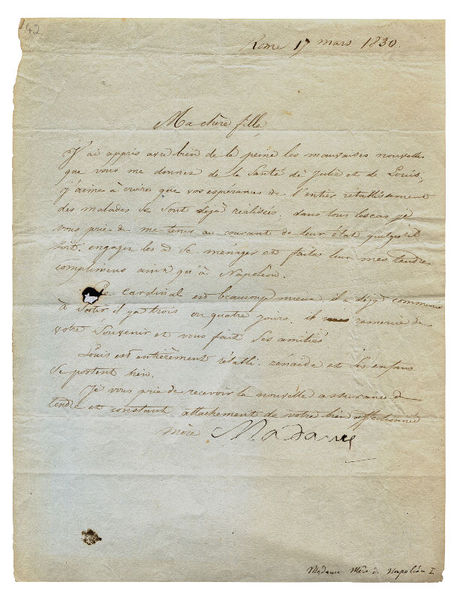 42
Rome 17 mars 1830.
Ma chère fille
J'ai appris avec bien de la peine les mauvaises nouvelles
que vous me donnez de la Santé de Julie et de Louis,
j'aime à croire que vos espérances de l'entier rétablissement
des malades se sont déjà réalisées, dans tous les cas je
vous prie de me tenir au courant de leur état quelqu'il
soit. engagez les à se ménager et faites leur mes tendres
complimens ainsi qu'à Napoléon.
Le Cardinal est beaucoup mieux il a déjà commencé
à sortir il y a trois ou quatre jours. il vous remercie de
votre Souvenir et vous fait Ses amitiés
Louis est entièrement rétabli. Zénaïde et les enfans
se portent bien.
Je vous prie de recevoir la nouvelle assurance du
tendre et constant attachement de votre bien affectionnée
mère Madame
Madame Mère de Napoléon I